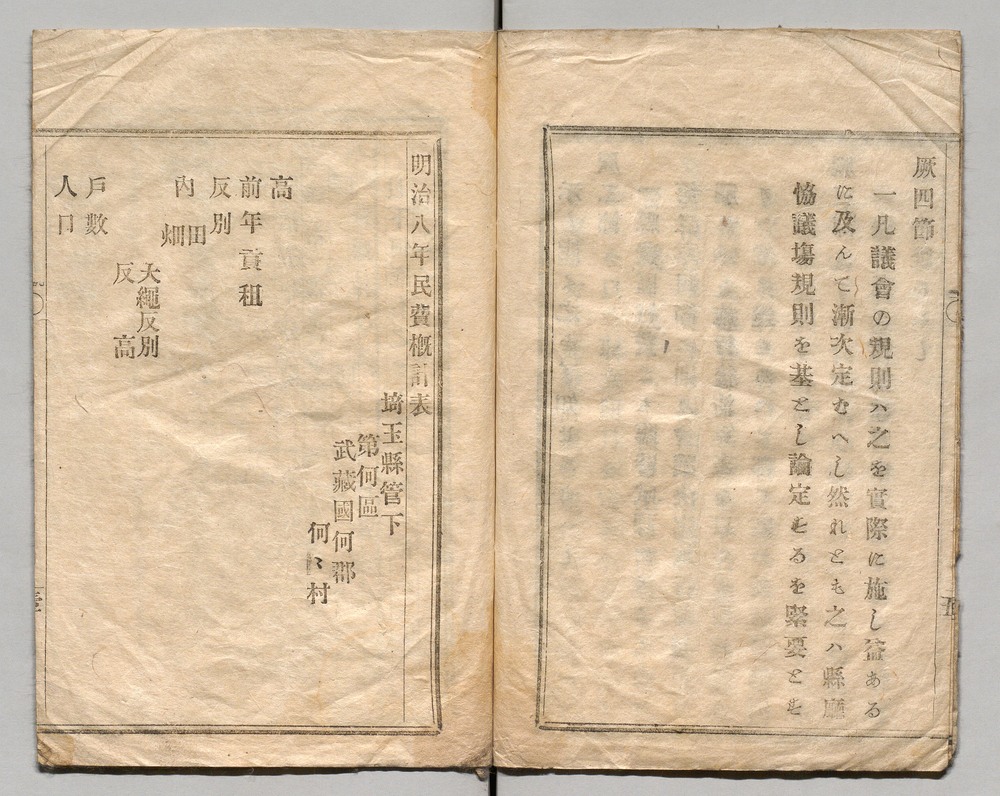 厥四節
一凡議會の規則ハ之を實際に施し益ある
に及んて漸次定むへし然れとも之ハ縣廳
恊議塲規則を基とし論定せるを緊要とせ
五
明治八年民費概計表
埼玉縣管下
第何區
武藏國何郡
何〻村
高
前年貢租
反別
内
田
畑
大繩反別
反高
戶數
人口